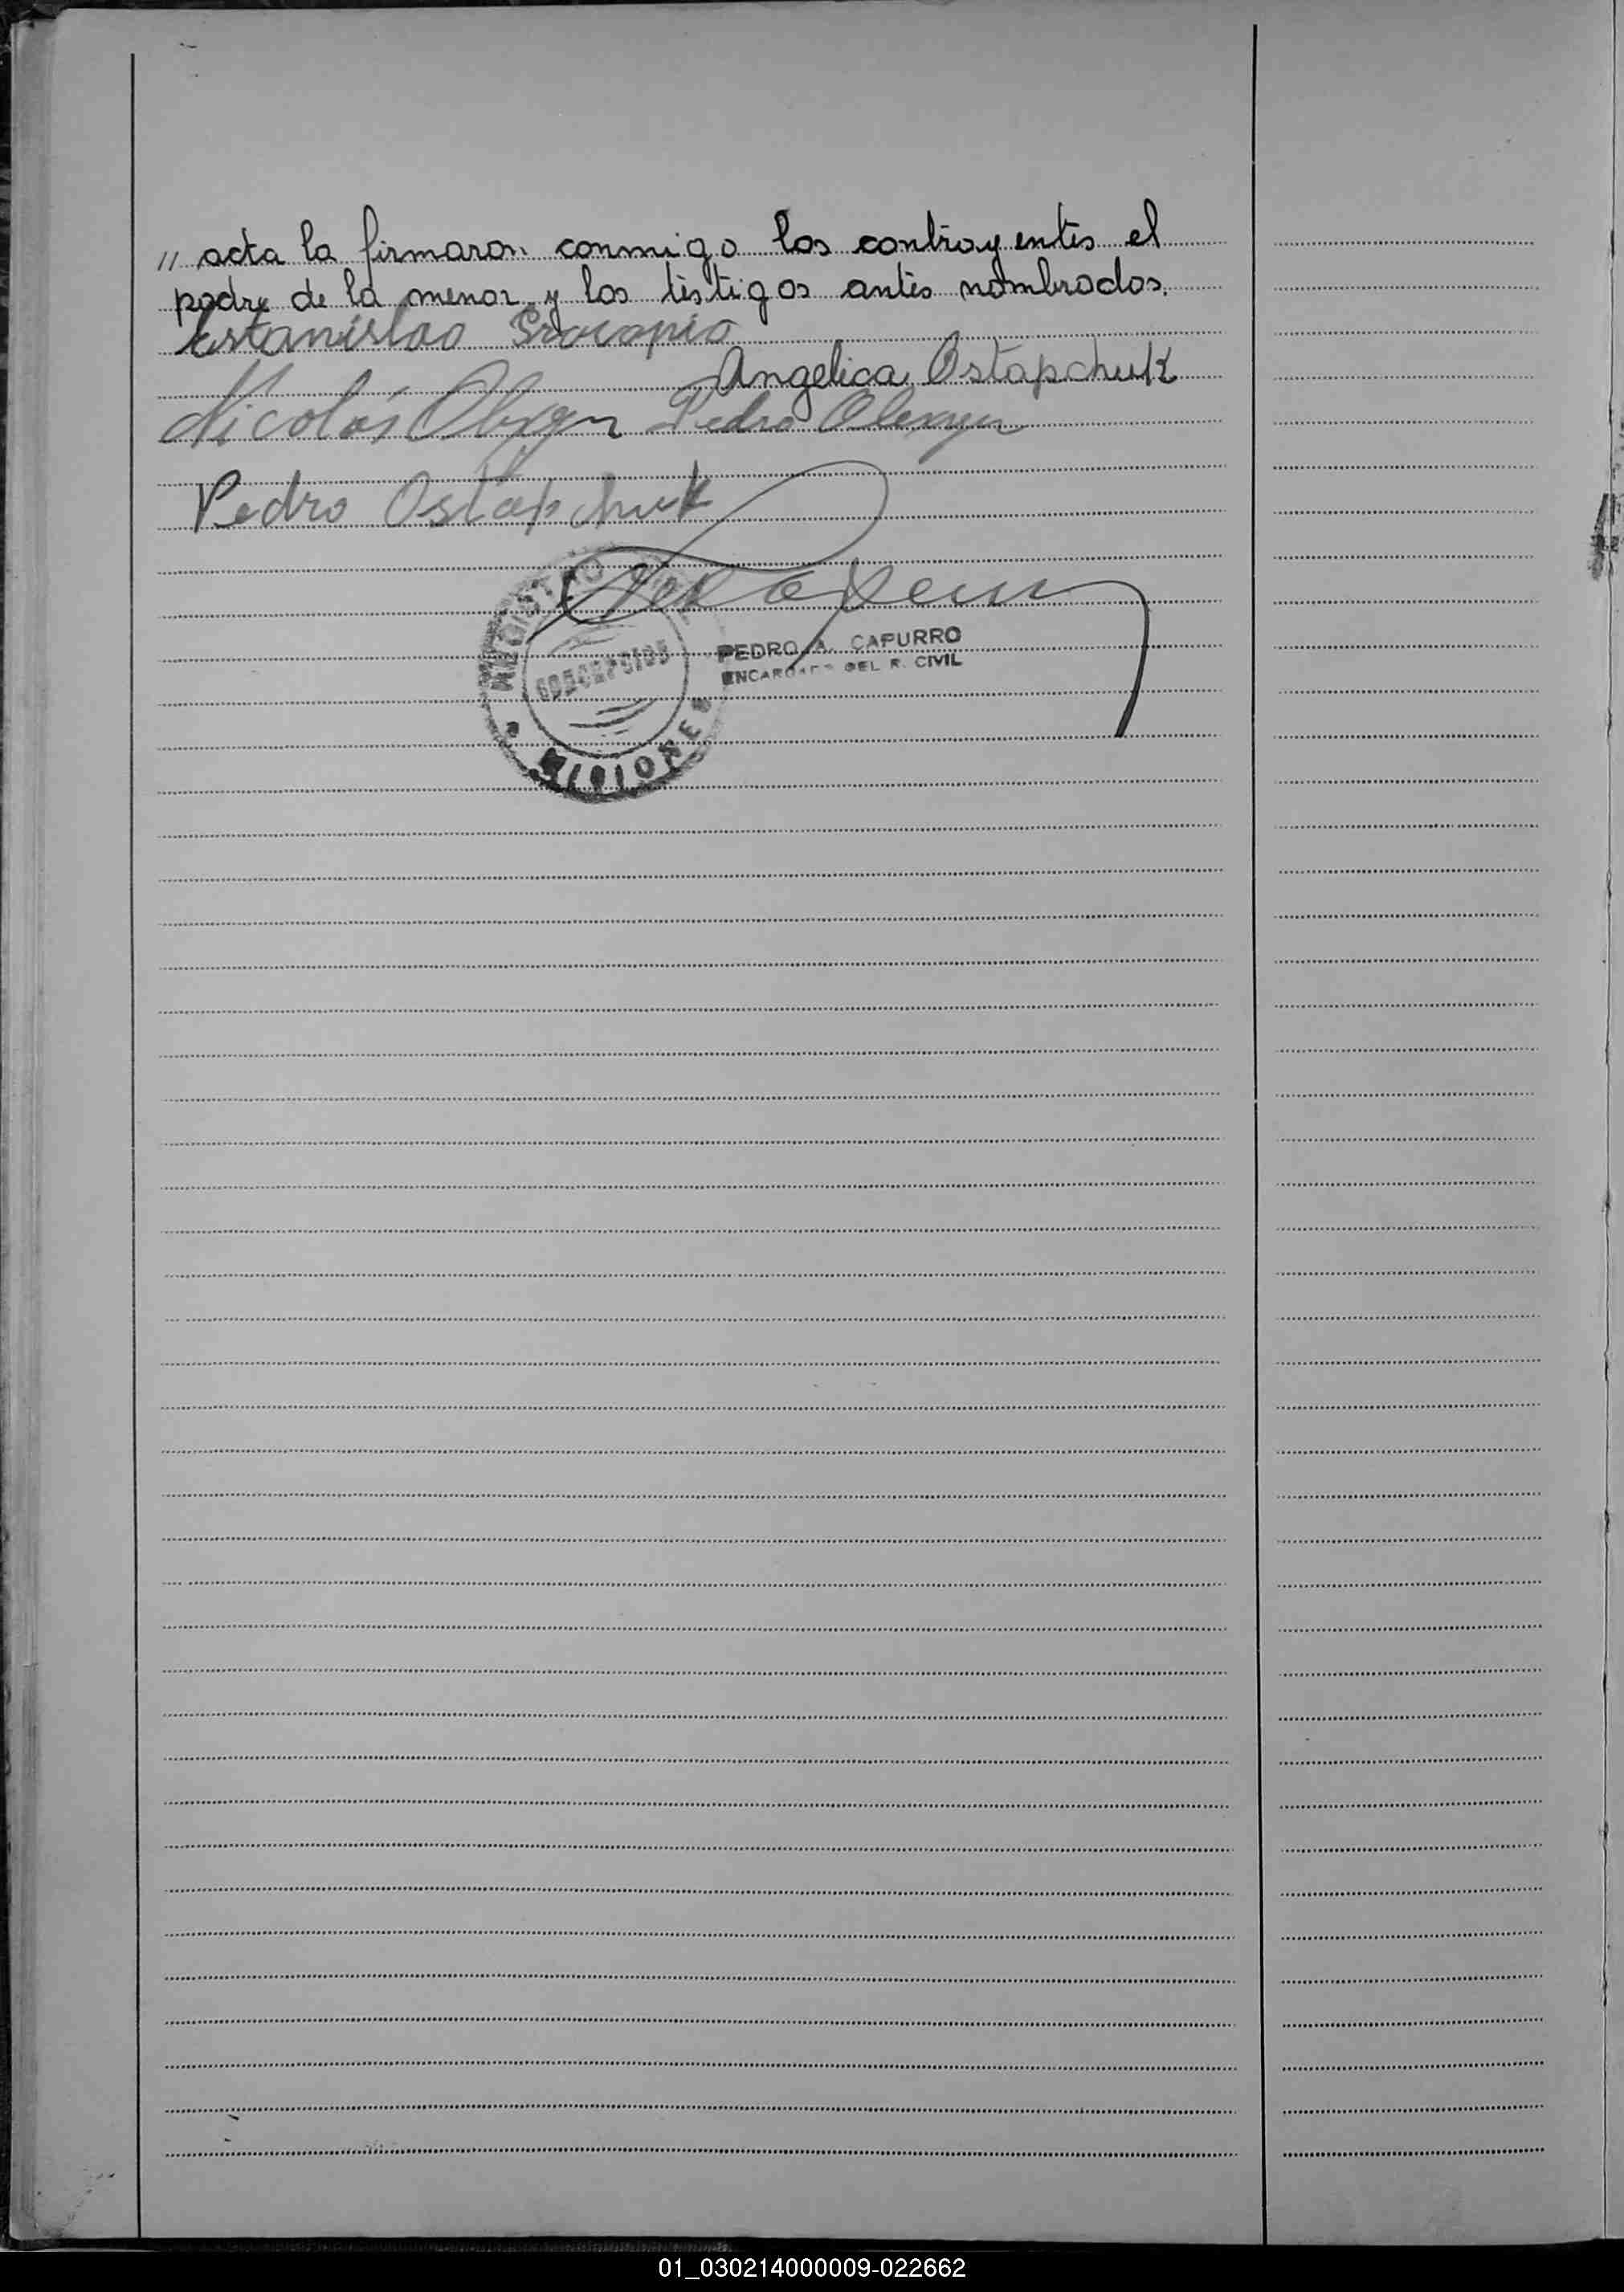 // acta la firmaron conmigo los contrayentes el
padre de la menor y los testigos antes nombrados.
Estanislao Procopio
Angelica Ostapchuk
Nicolás Pedro
Pedro Ostapchuk
REGISTRO
CONCEPCION
MISIONES
PEDRO A. CAPURRO
ENCARGADO DEL R. CIVIL
01_030214000009-022662